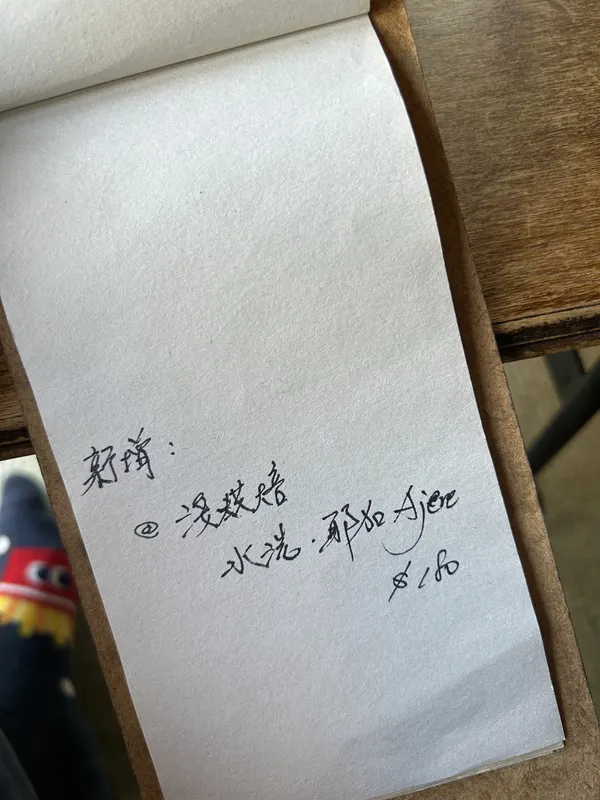 新增：
⊕ 淺烘焙
水洗．耶加 Ajere
$180